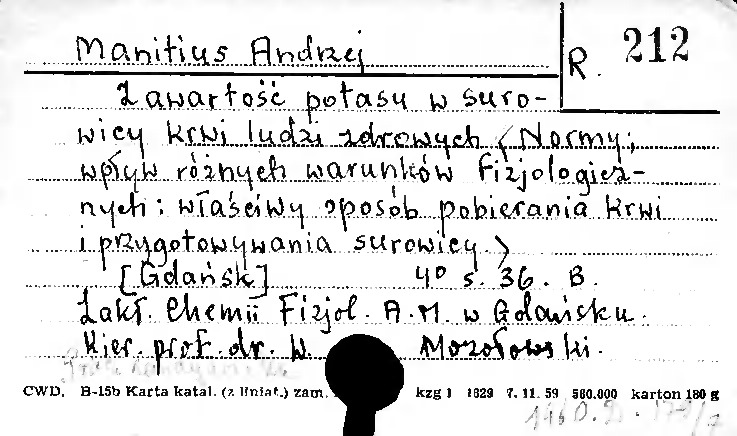 Manitius Andrzej
R. 212
Zawartość potasu w suro-
wicy krwi ludzi zdrowych (Normy;
wpływ różnych warunków fizjologicz-
nych: właściwy sposób pobierania krwi
i przygotowywania surowicy)
[Gdańsk] 4° s. 36. B.
Zakł. Chemii Fizjol. A.M. w Gdańsku.
Kier. prof. dr. W. Mozołowski.
CWD. B-15b Karta katal. (z liniat.) zam. kzg 1 1829 7. 11. 59 580.000 karton 180 g